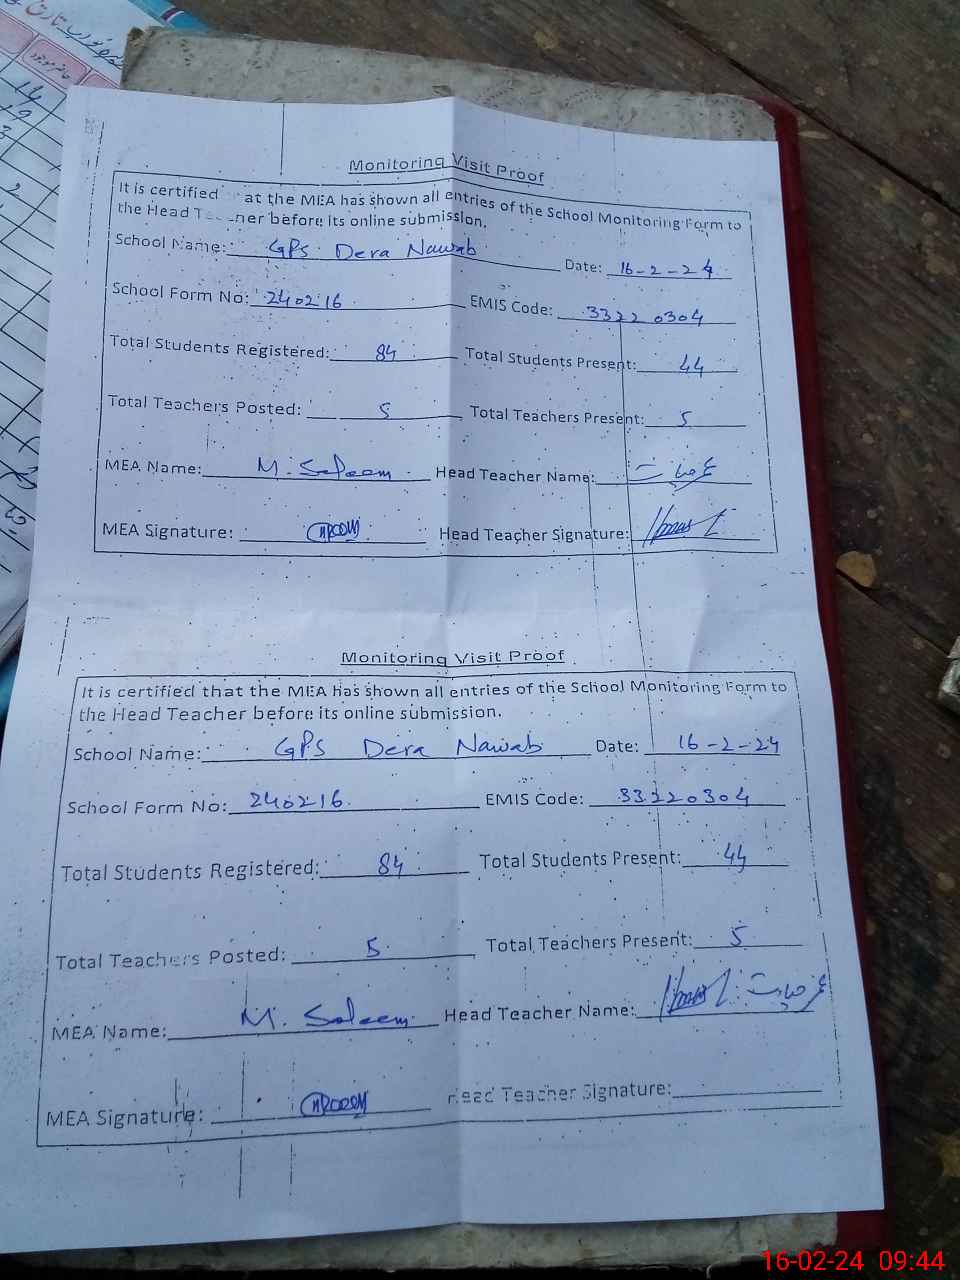 حاضر موجود
Monitoring Visit Proof
It is certified at the MEA has shown all entries of the School Monitoring Form to
the Head Te ner before its online submission.
School Name: GPS Dera Nawab Date: 16-2-24
School Form No: 240216 EMIS Code: 33220304
Total Students Registered: 84 Total Students Present: 44
Total Teachers Posted: 5 Total Teachers Present: 5
MEA Name: M. Saleem Head Teacher Name:
MEA Signature: Head Teacher Signature:
Monitoring Visit Proof
It is certified that the MEA has shown all entries of the School Monitoring Form to
the Head Teacher before its online submission.
School Name: GPS Dera Nawab Date: 16-2-24
School Form No: 240216 EMIS Code: 33220304
Total Students Registered: 84 Total Students Present: 44
Total Teachers Posted: 5 Total Teachers Present: 5
MEA Name: M. Saleem Head Teacher Name:
MEA Signature: Head Teacher Signature:
16-02-24 09:44